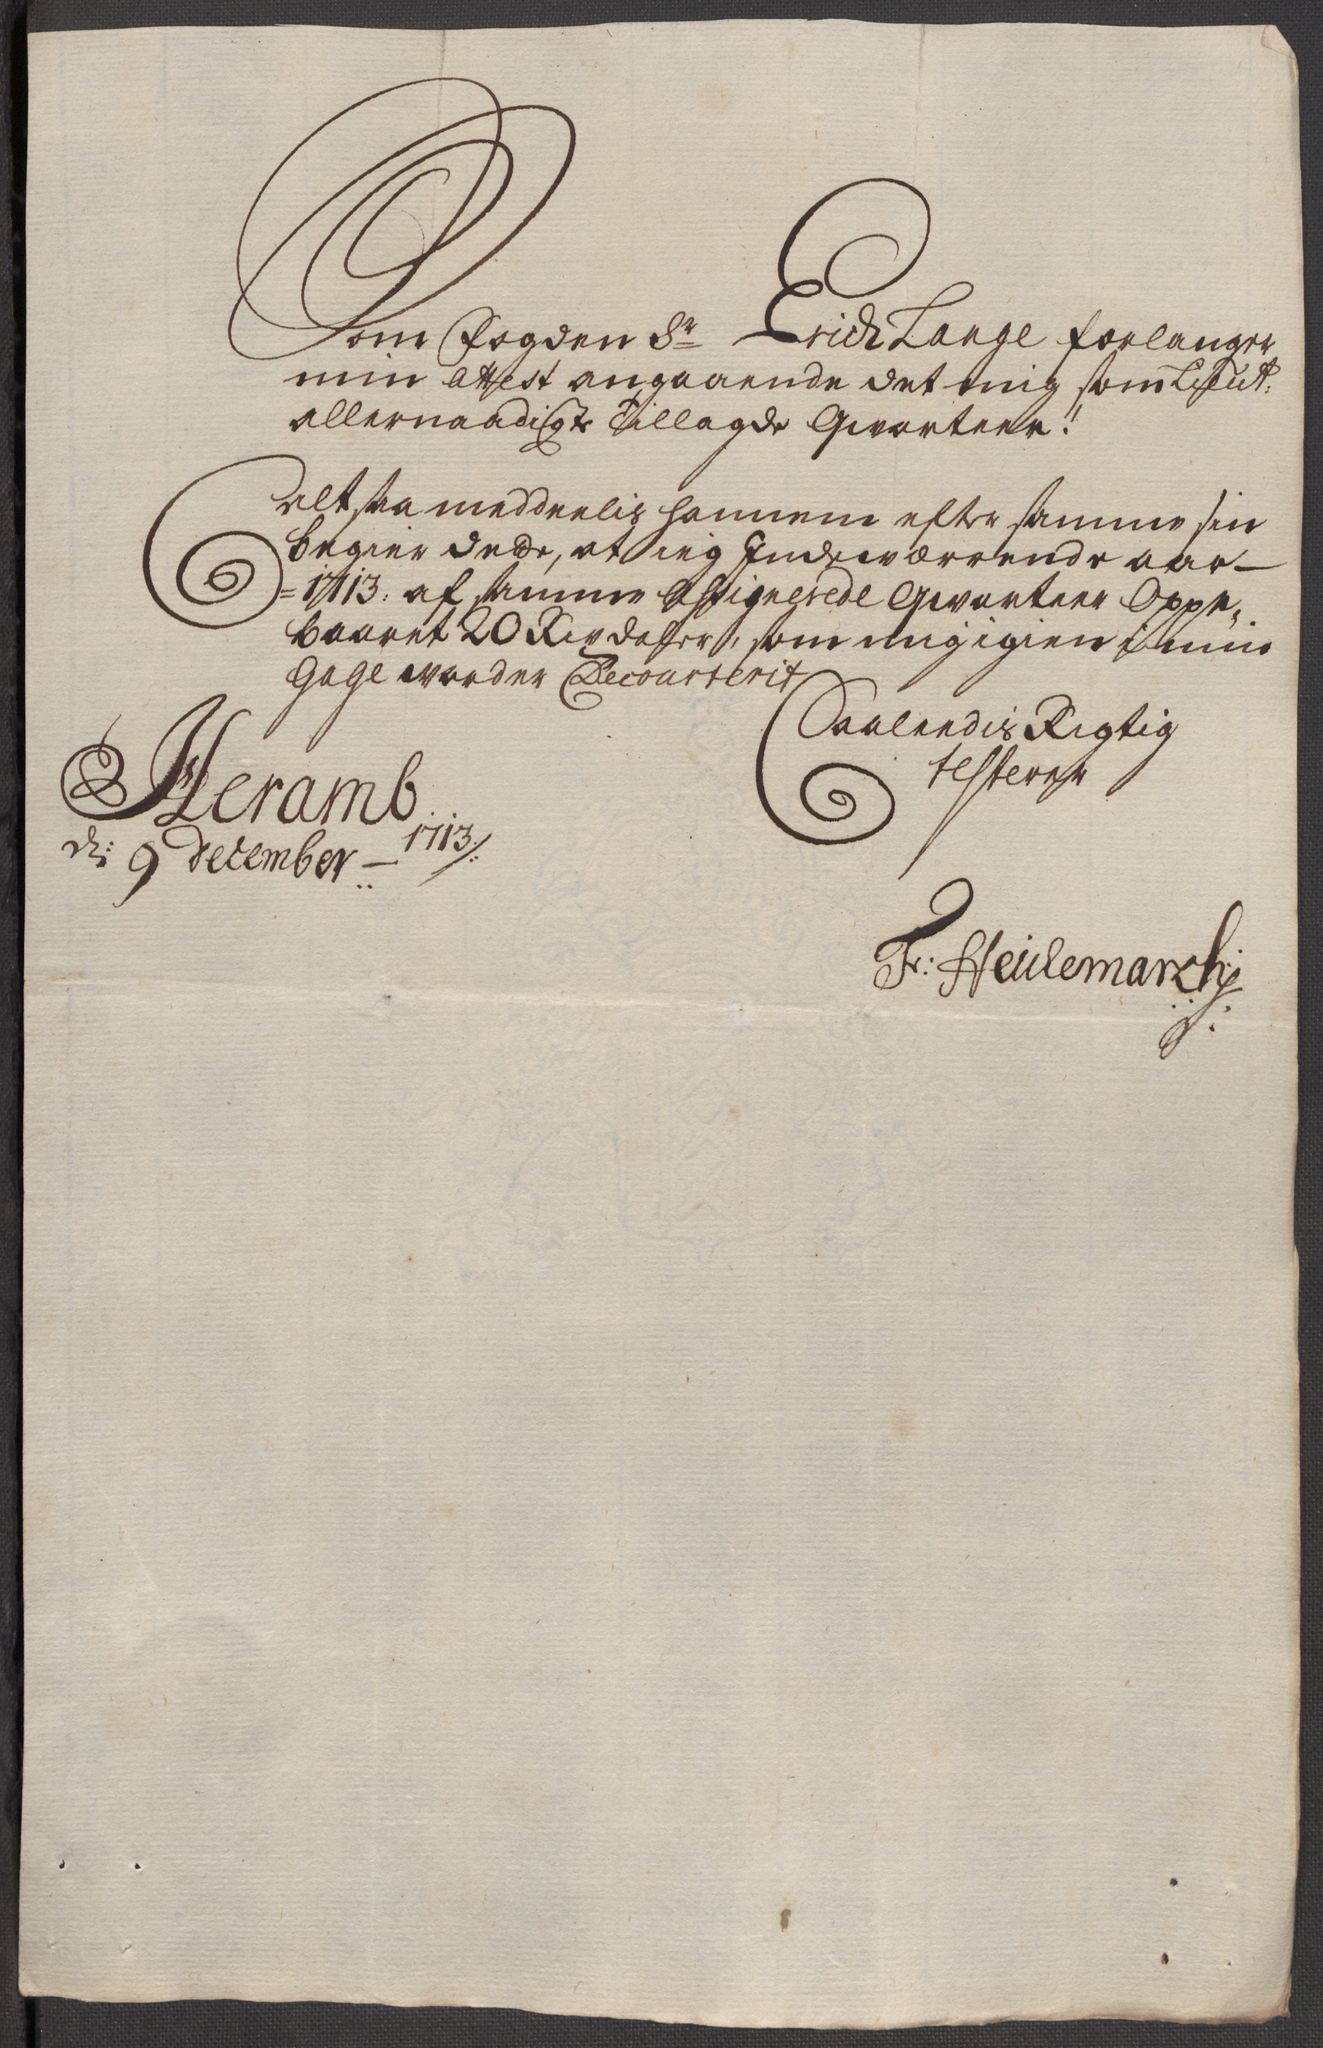 Som Fogden Sr Erich Lange forlanger
min Attest angaaende det mig som Lieut:
allernaadigste Tillagde Qvarteer!
altsaa meddeelis hannem efter samme sin
begier dette, at ieg Indeværrende aar
1713: af samme Assignerede Qvarteer Oppe,
baaret 20 Rixdaller, som mig igien i min
Gage vorder Decourterit
Saaledis Rigtig
testerer
Heramb
d: 9 December 1713
Fr: Heidemarck